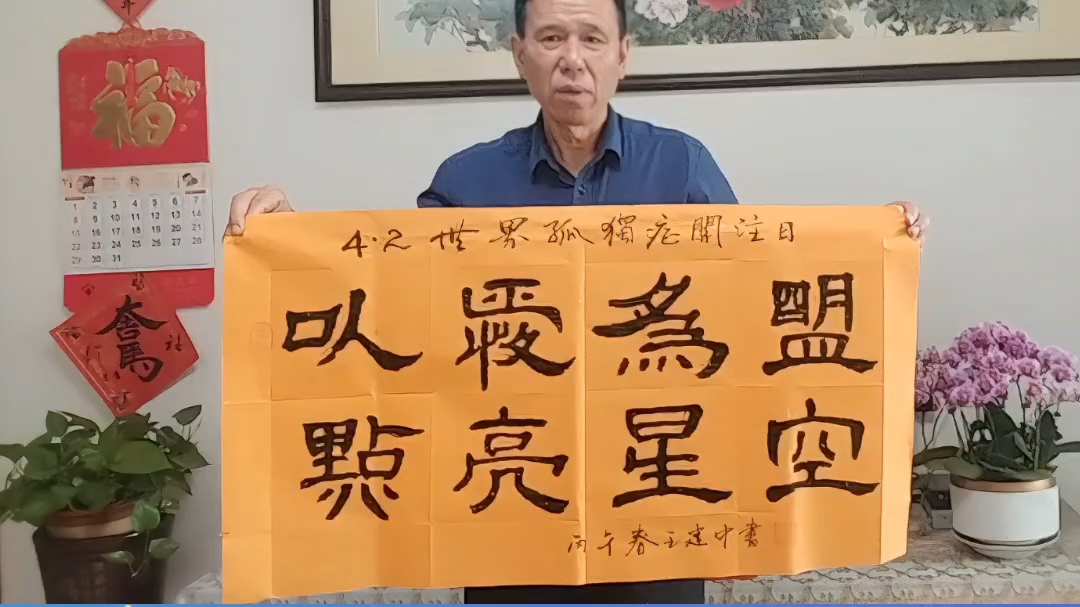 年
福
1 2 3 4 5 6 7
8 9 10 11 12 13 14
15 16 17 18 19 20 21
22 23 24 25 26 27 28
29 30 31
4·2 世界孤獨症關注日
以愛為盟
點亮星空
丙午春王建中書